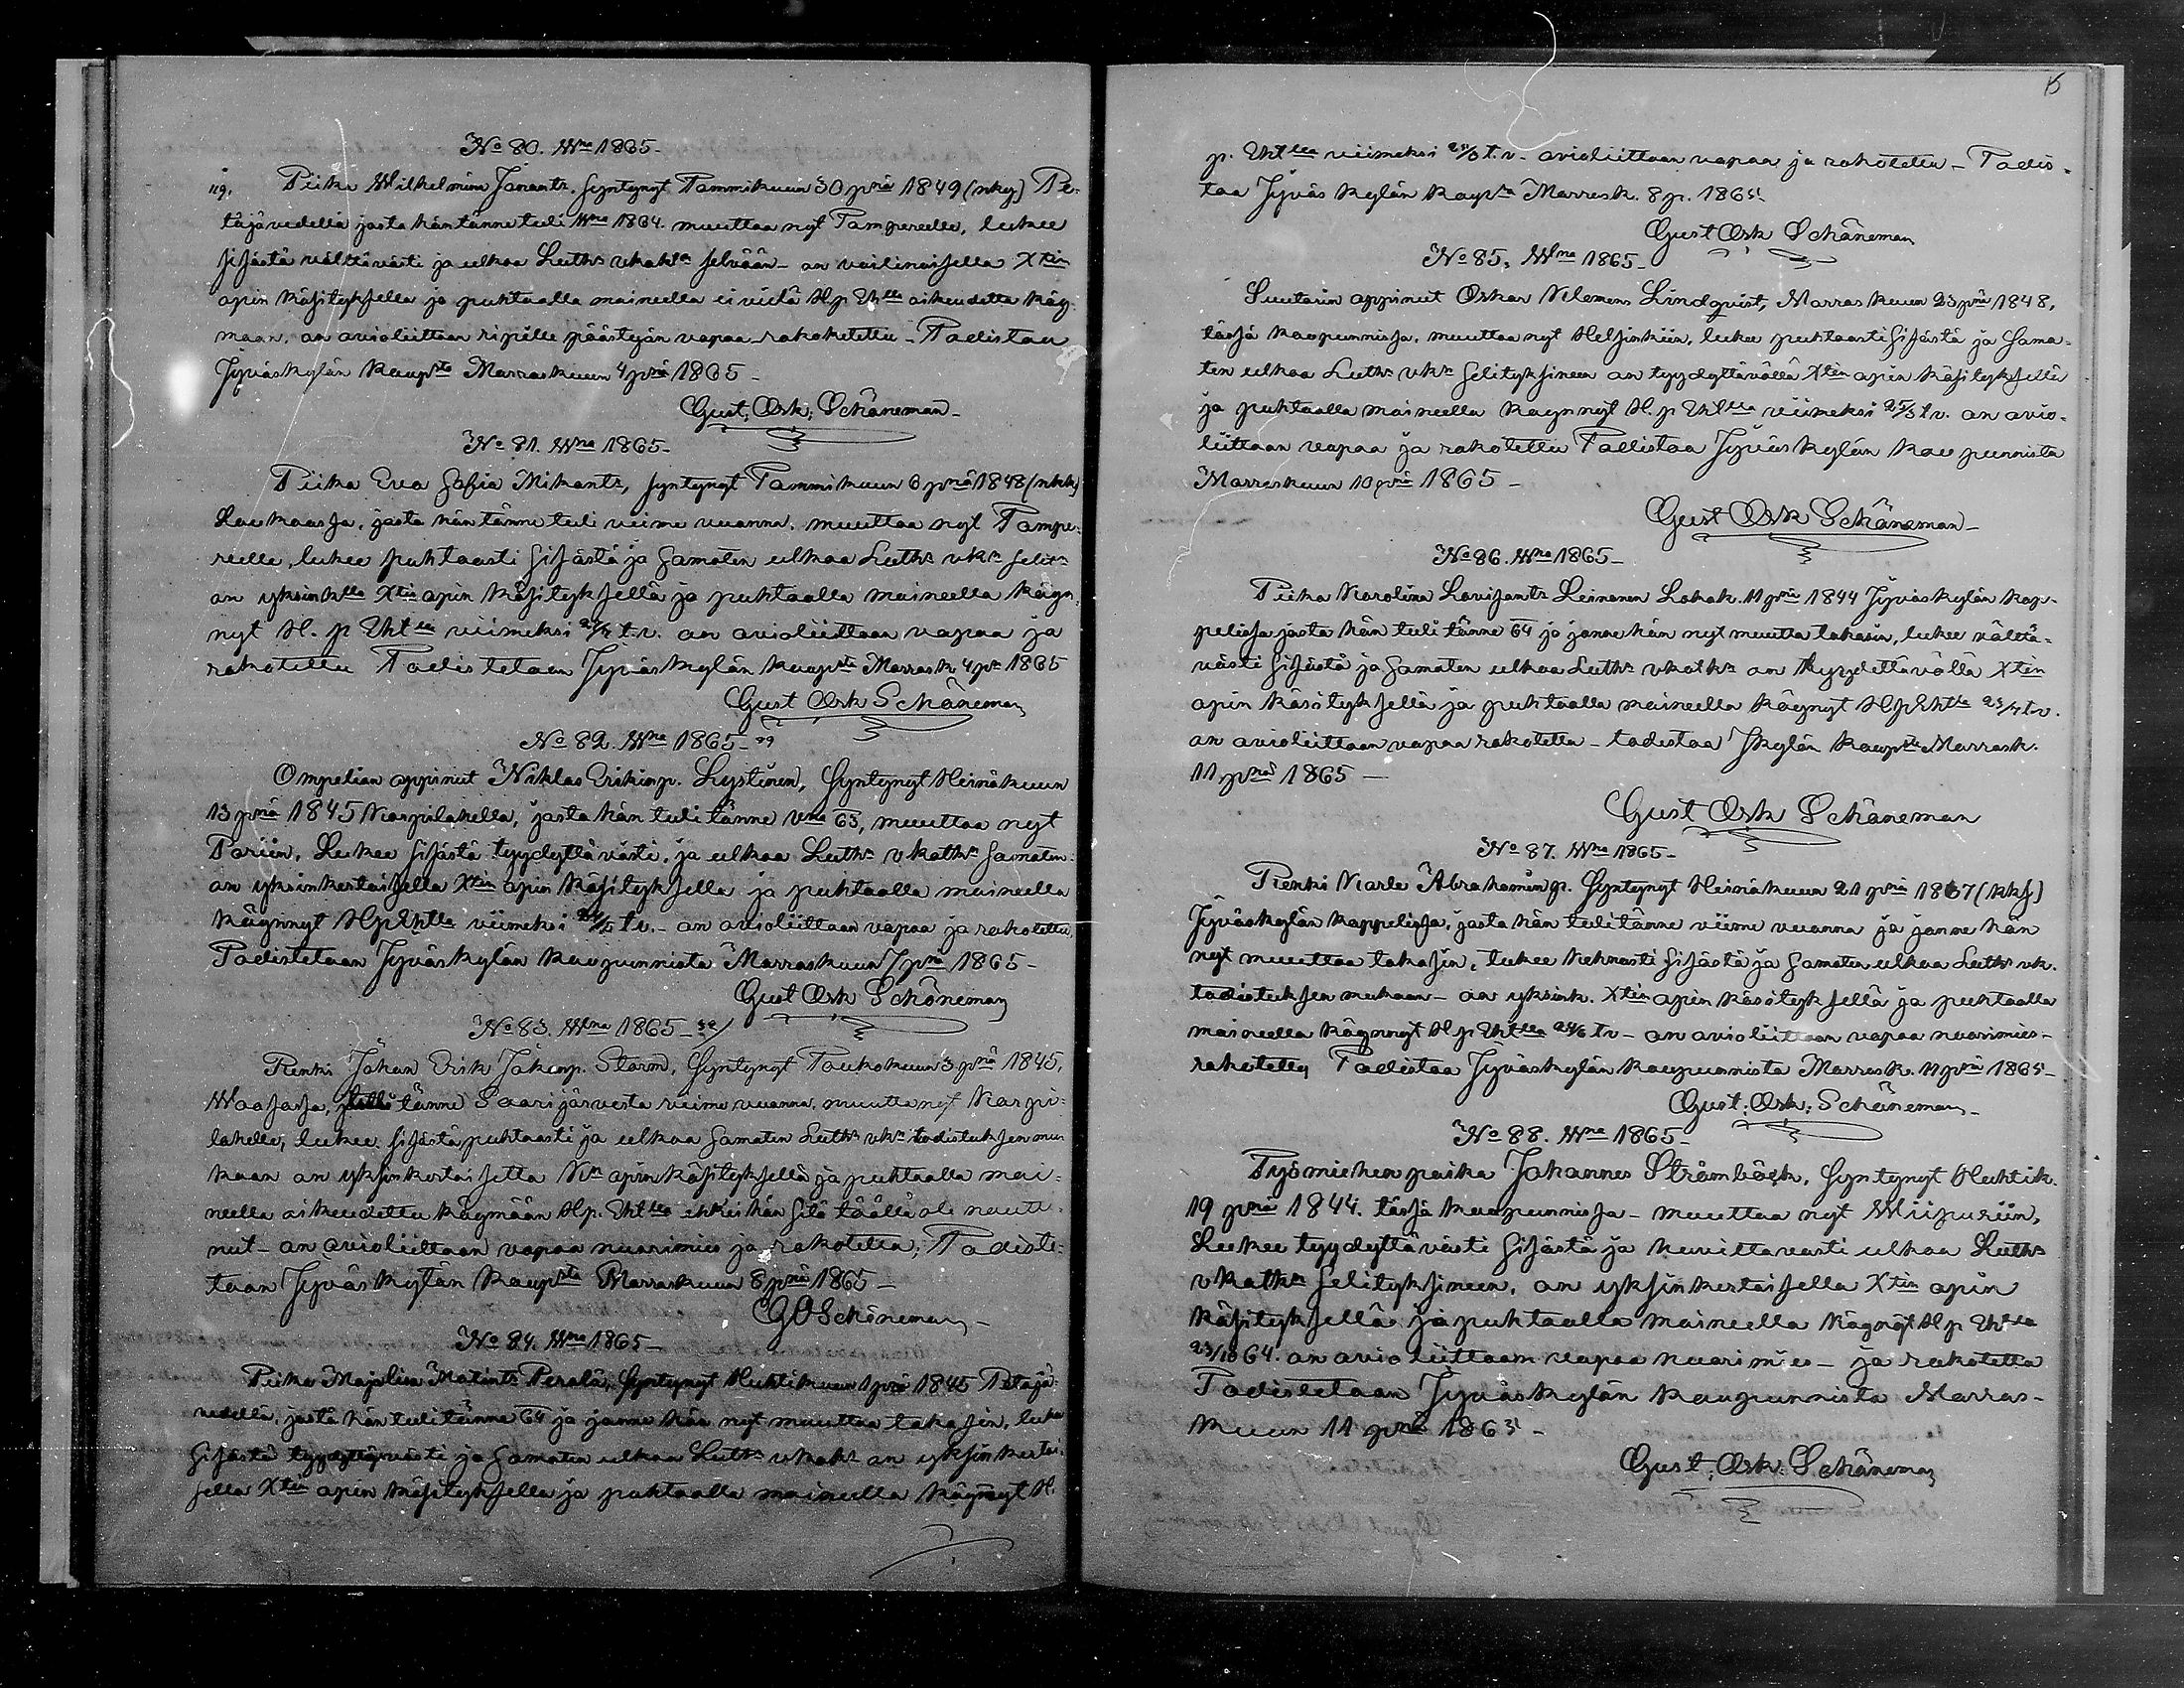 No 80. Wna 1865-
119. Piika Wilhelmina Janantr. Syntynyt Tammikuun 30 pnä 1849 (nkg) Pe-
täjävedellä josta hän tänne tuli Wna 1864. muuttaa nyt Tampereelle, lukee
sisästä välttävästi ja ulkoa Luth. selvään - on Xtin
opin käsityksellä ja puhtaalla maineella ei vielä H.p. Eht.lla oikeudettu käy-
mään, on avioliittoon ripille päästyän vapaa rokotettu - Todistaa
Jyväskylän Kaupsta Marraskuun 4 pnä 1865-
Gust. Osk. Schöneman-
No 81. Wna 1865-
Piika Eva Sofia Mikantr, syntynyt Tammikuun 6 pnä 1848 (nkk)
Laukaassa, josta hän tänne tuli viime vuonna, muuttaa nyt Tampe-
reelle, lukee puhtaasti sisästä ja samoten ulkoa Luth. vkn selit.
on yksinklla Xtin opin käsityksellä ja puhtaalla maineella käyn-
nyt H. p Ehtlla viimeksi t.v. on avioliittoon vapaa ja
rokotettu Todistetaan Jyväskylän Kaupsta Marrask 4 pnä 1865
Gust Osk Schöneman
No 82. Wna 1865-
Ompelian oppinut Niklas Erikinp. Lystinen, Syntynyt Heinäkuun
13 pnä 1845 Korpilahella, josta hän tuli tänne Vna 63, muuttaa nyt
Poriin, Lukee sisästä tyydyttävästi, ja ulkoa Luth. vkatkn samoten
on yksinkertaisella Xtin opin käsityksellä ja puhtaalla maineella
käynnyt HpEhtlla viimeksi t.v. - on avioliittoon vapaa ja rokotettu,
Todistetaan Jyväskylän kaupunnista Marraskuun 7 pnä 1865-
Gust Osk Schöneman
No 83. Wna 1865-
Renki Johan Erik Jakonp. Storm, Syntynyt Toukokuun 3 pnä 1845,
Waasassa, tänne Saarijärvestä viime vuonna, muuttaa nyt Korpi-
lahelle, lukee sisästä puhtaasti ja ulkoa samoten Luth. vkn todistuksen mu-
kaan on yksinkertaisella Xtn opin käsityksellä ja puhtaalla mai-
neella oikeudettu käymään H.p. Ehtlla ehkei hän sitä täällä ole nautt-
nut - on avioliittoon vapaa nuorimies ja rokotettu, Todiste-
taan Jyväskylän Kaupsta Marraskuun 8 pnä 1865-
GOSchöneman-
No 84. Wna 1865-
Piika Majalisa Matintr Perälä, Syntynyt Huhtikuun 1 pnä 1845 Petäjä-
vedellä, josta hän tuli tänne 64 ja jonne hän nyt muuttaa takasin, lukee
sisästä tyydyttävästi ja samoten ulkoa Luth. vkatk. on yksinkertai-
sella Xtin opin käsityksellä ja puhtaalla maineella käynnyt H.
15
p. Ehtlla viimeksi t.v. - avioliittoon vapaa ja rokotettu - Todis-
taa Jyväskylän Kaupsta Marrask. 8 p. 1865.
Gust Osk Schöneman
No 85. Wna 1865-
Suutarin oppinut Oskar Klemens Lindqvist, Marraskuun 23 pnä 1848,
tässä kaupunnissa, muuttaa nyt Helsinkiin, lukee puhtaasti sisästä ja sama-
ten ulkoa Luth. vkn selityksineen on tyydyttävällä Xtin opin käsityksellä
ja puhtaalla maineella käynnyt H.p Ehtlla viimeksi 25/5 t.v. on avio-
liittoon vapaa ja rokotettu Todistaa Jyväskylän kaupunnista
Marraskuun 10 pnä 1865-
Gust Osk Schöneman-
No 86. Wna 1865-
Piika Karolina Lovisantr Leinonen Lokak. 11 pnä 1844 Jyväskylän Kap-
pelissa josta hän tuli tänne 64 ja jonne hän nyt muutta takasin, lukee väletä-
västi sisästä ja samoten ulkoa Luth. vkatkn on tyydettävällä Xtin
opin käsityksellä ja puhtaalla maineella käynyt HpEhtlla 23/4 t.v.
on avioliittoon vapaa rokotettu - todistaa Jkylän Kaupsta Marrask.
11 pnä 1865-
Gust Osk Schöneman
No 87. Wna 1865-
Renki Karle Abrahamin p. Syntynyt Heinäkuun 21 pnä 1847 (kks)
Jyväskylän kappelissa, josta hän tuli tänne viime vuonna ja jonne hän
nyt muuttaa takasin, lukee kehnosti sisästä ja samoten ulkoa Luth. vk.
todistuksen mukaan - on yksink. Xtin opin käsityksellä ja puhtaalla
maineella käynnyt H.p Ehtlla 24/6 t.v - on avioliittoon vapaa nuorimies-
rokotettu Todistaa Jyväskylän kaupunnista Marrask. 11 pnä 1865-
Gust. Osk. Schöneman-
No 88. Wna 1865-
Työmiehen poika Johannes Strömbäck, Syntynyt Huhtik.
19 pnä 1844. tässä kaupunnissa - muuttaa nyt Wiipuriin,
Lukee tyydyttävästi sisästä ja kuultavasti ulkoa Luth.
vkatkn selityksineen, on yksinkertaisella Xtin opin
käsityksellä ja puhtaalla maineella käynyt H.p. Ehtlla
23/10 64. on avioliittoon vapaa nuorimies - ja rokotettu
Todistetaan Jyväskylän kaupunnista Marras-
kuun 11 pnä 1865-
Gust. Osk. Schöneman